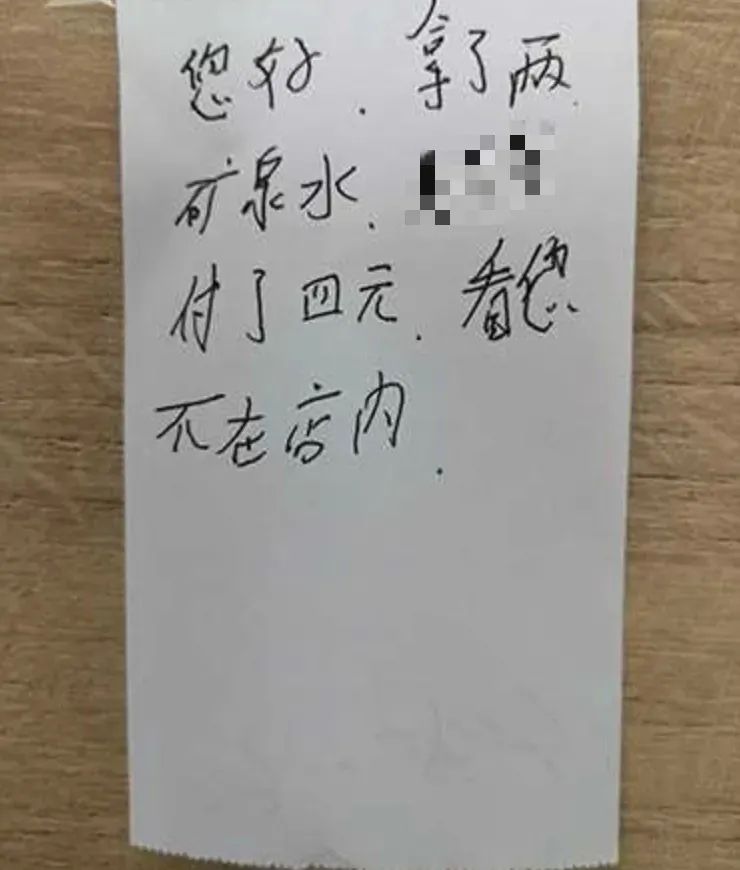 您好.拿了两
矿泉水.
付了四元.看您
不在店内.